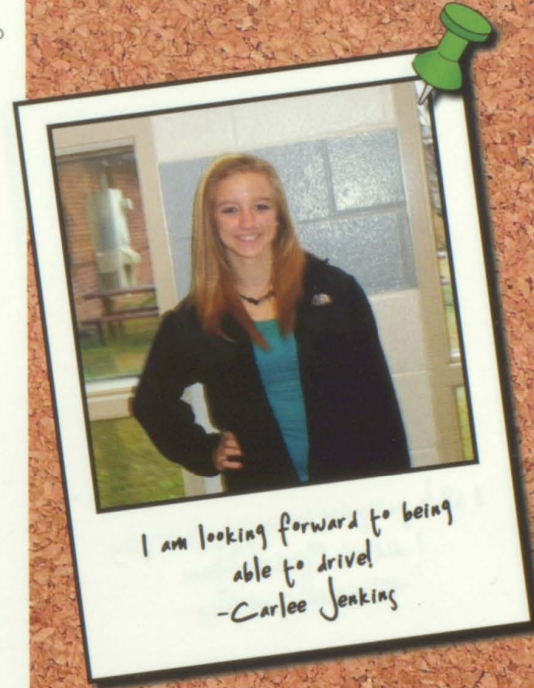 I am looking forward to being
able to drive!
-Carlee Jenkins